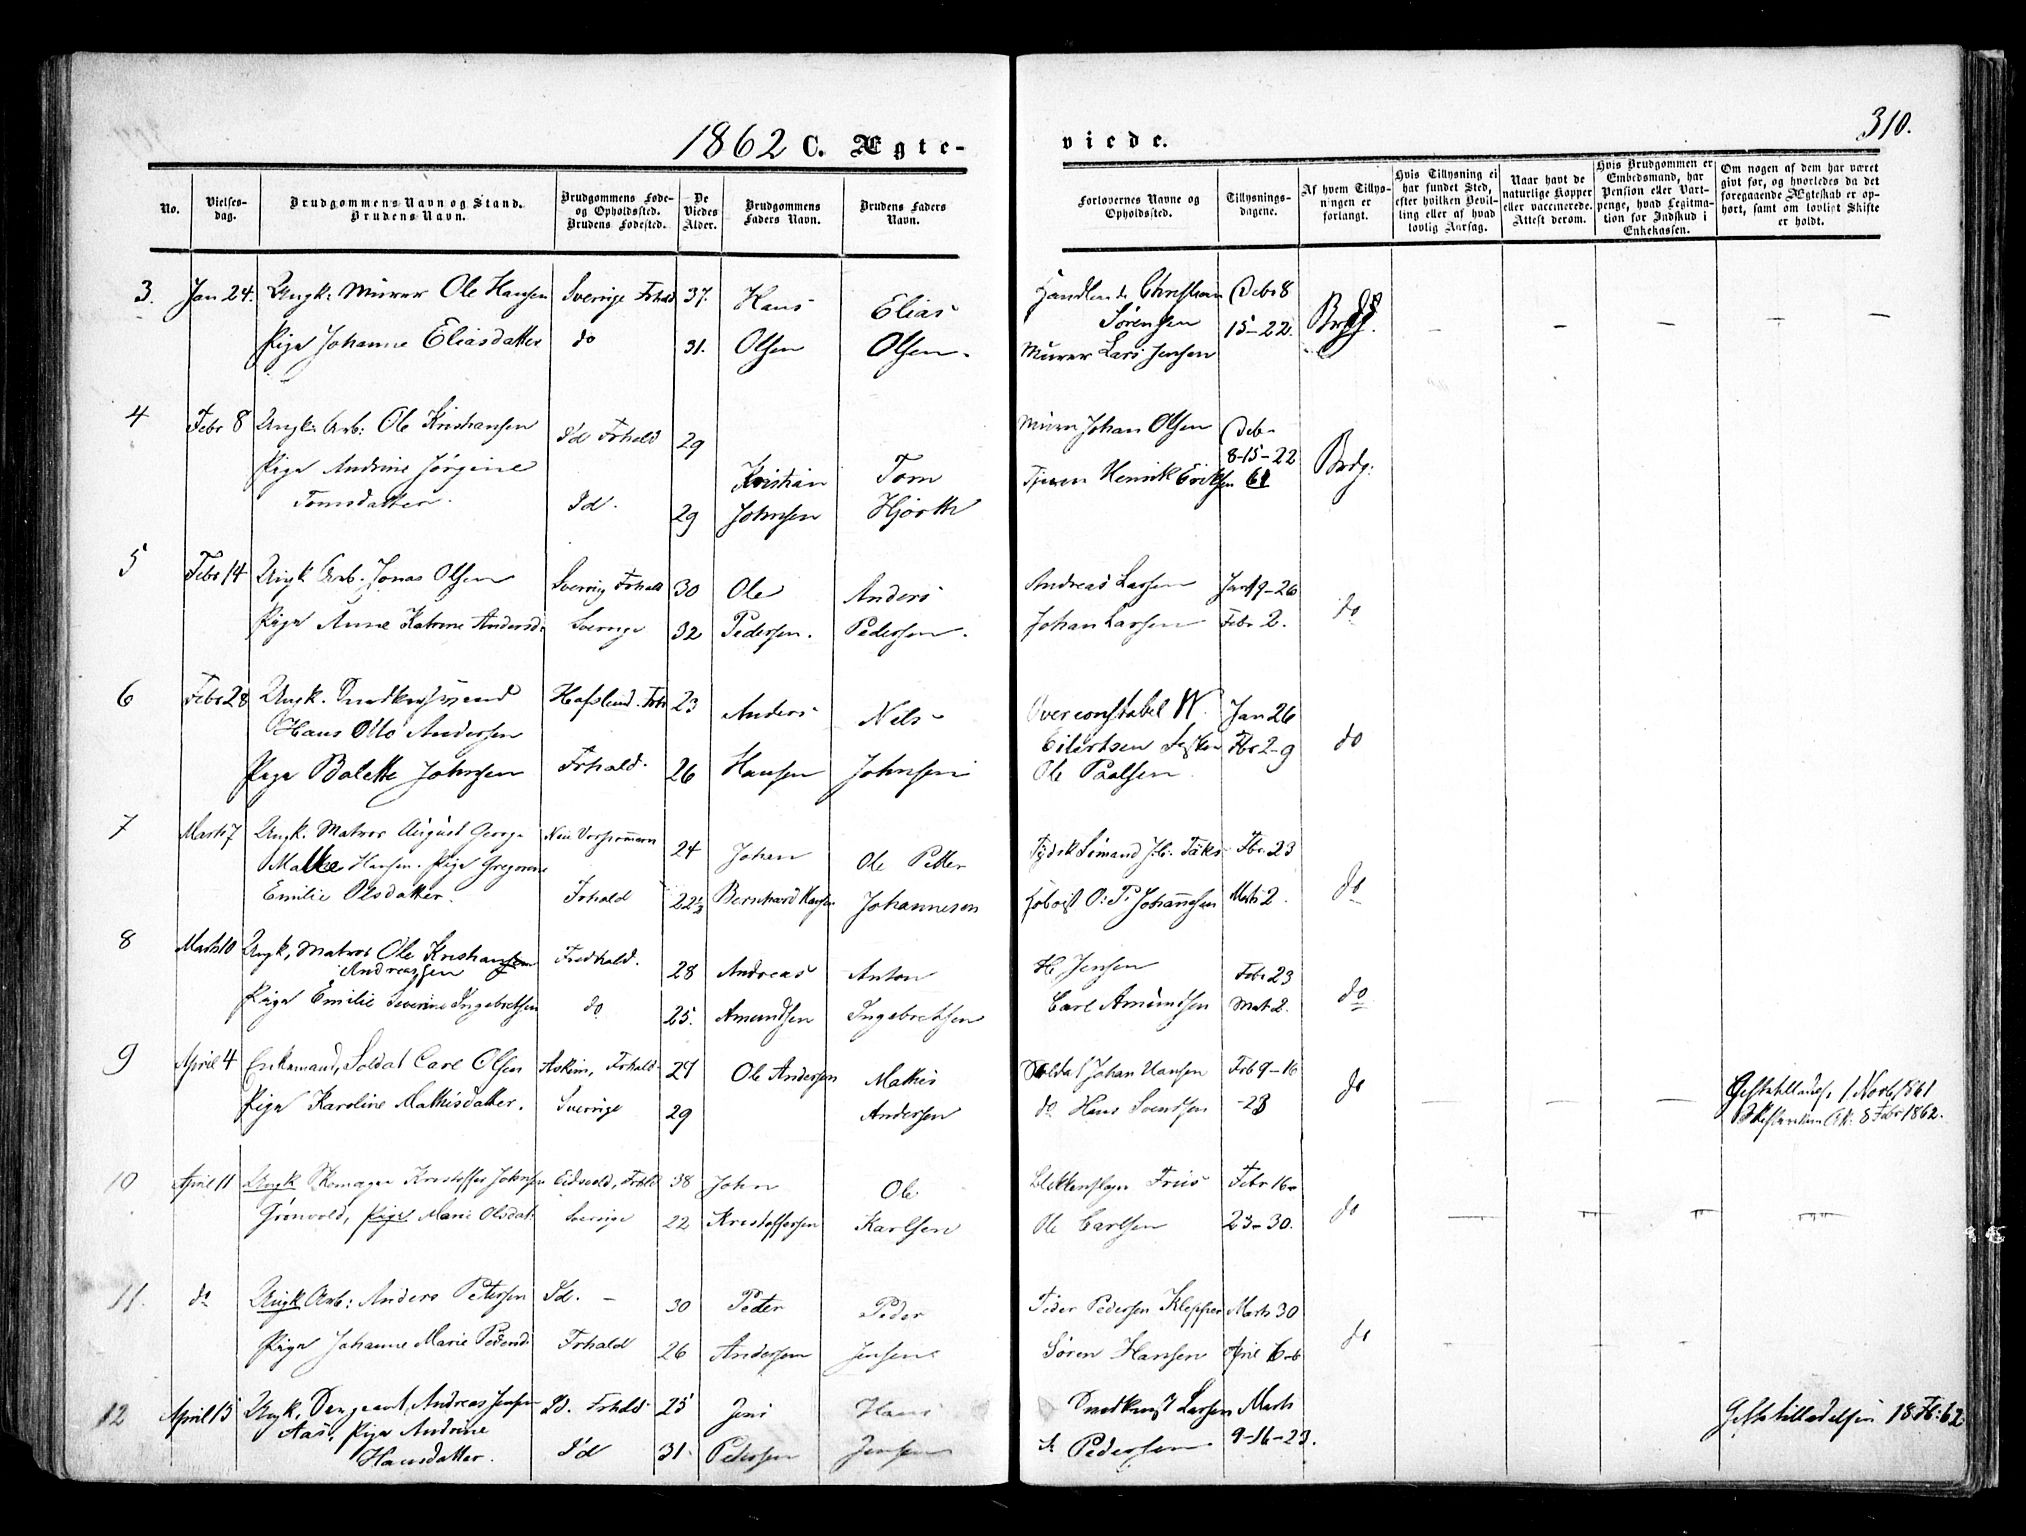 310.
1862 C. Ægte-
viede.
No.
Vielses-
dag.
Brudgommens Navn og Stand.
Brudens Navn.
Brudgommens Føde-
og Opholdssted.
Brudens Fødested.
De
Viedes
Alder.
Brudgommens
Faders Navn.
Brudens Faders
Navn.
Forlovernes Navne og
Opholdssted.
Tillysnings-
dagene.
Af hvem Tillys-
ningen er
forlangt.
Hvis Tillysning ei
har fundet Sted,
efter hvilken Bevil-
ling eller af hvad
lovlig Aarsag.
Naar havt de
naturlige Kopper
eller vaccinerede.
Attest derom.
Hvis Brudgommen er
Embedsmand, har
Pension eller Vart-
penge, hvad Legitima-
tion for Indskud i
Enkekassen.
Om nogen af dem har været
givt før, og hvorledes da det
foregaaende Ægteskab er op-
hørt, samt om lovligt Skifte
er holdt.
3. Jan 24. Ungk: Murer Ole Hansen Sverrige Frhald 37. Hans Elias
Pige Johanne Eliasdatter do 31. Olsen Olsen.
Handlende Christian Debr 8
Sørensen 15-22. Brdg.
Murer Lars Jensen
4 Febr 8 Ungk. Arb: Ole Kristiansen Id Frhald 29
Pige Andrine Jørgine Kristian Tom
Tomsdatter. Id. 29 Johnsen Hjorth
Murer Johan Olsen Deb.
8-15-22 Brdg:
Henrik Eriksen 61
5 Febr 14 Ungk Arb. Jonas Olsen Sverrig Frhald 30 Ole Anders
Pige Anne Katrine Andersd. Sverrige 32 Pedersen. Pedersen.
Andreas Larsen Jan 19-26
Johan Larsen Febr 2. do
6 Febr 28 Ungk. Hafslund. Frh 23 Anders Nils
Hans Otto Andersen
Pige Bolette Johnsen Frhald. 26 Hansen Johnsen
Overconstabel N. Jan 26
Eilertsen Fbr 2-9 do
Ole Paalsen.
7 Marts 7 Ungk. Matros August Georg Neu Vorpommern 24 Johan Ole Petter
Malke Hansen. Pige Gregorine
Emilie Olsdatter. Frhald 22½ Bernhard Hansen Johannesen
Fbr 23
O: P. Johannesen Marts 2. do
8 Marts 10 Ungk, Matros Ole Kristiansen Fredhald. 28 Andreas Anton
Andreassen
Pige Emilie Severine Ingebretsen do 25. Amundsen Ingebretsen
H Jensen Febr 23
Carl Amundsen Mart 2. do
9 April 4 Enkemand, Soldat Carl Olsen Askim, Frhald 27 Ole Andersen Mathis
Pige Karoline Mathisdatter. Sverrige 29 Andersen
Johan Hansen Feb 9-16
do Hans Svendsen -23 do
1 Novb 1861
8 Febr 1862.
10 April 11 Ungk Skomager Kristoffer Johnsen Eidsvold, Frhld 38 John Ole
Grønvold, Pige Marie Olsdat: Sverrige 22 Kristoffersen Karlsen
Blikkenslager Friis Febr 16-
Ole Carlsen 23-30. do
11. do Ungk Arb: Anders Petersen Id. - 30 Peter Peder
Pige Johanne Marie Pedersd: Frhald 26 Andersen Jensen
Peder Pedersen Klepper Marts 30
Søren Hansen April 6 do
12 April 15 Ungk, Sergeant Andreas Jensen Id. Frhald 25 Jens Hans
Aas, Pige Andrine
Hansdatter. Id 31. Petersen Jensen
Larsen Marts
Pedersen 9-16-23.
Giftetilladelsen 18 Fb: 62